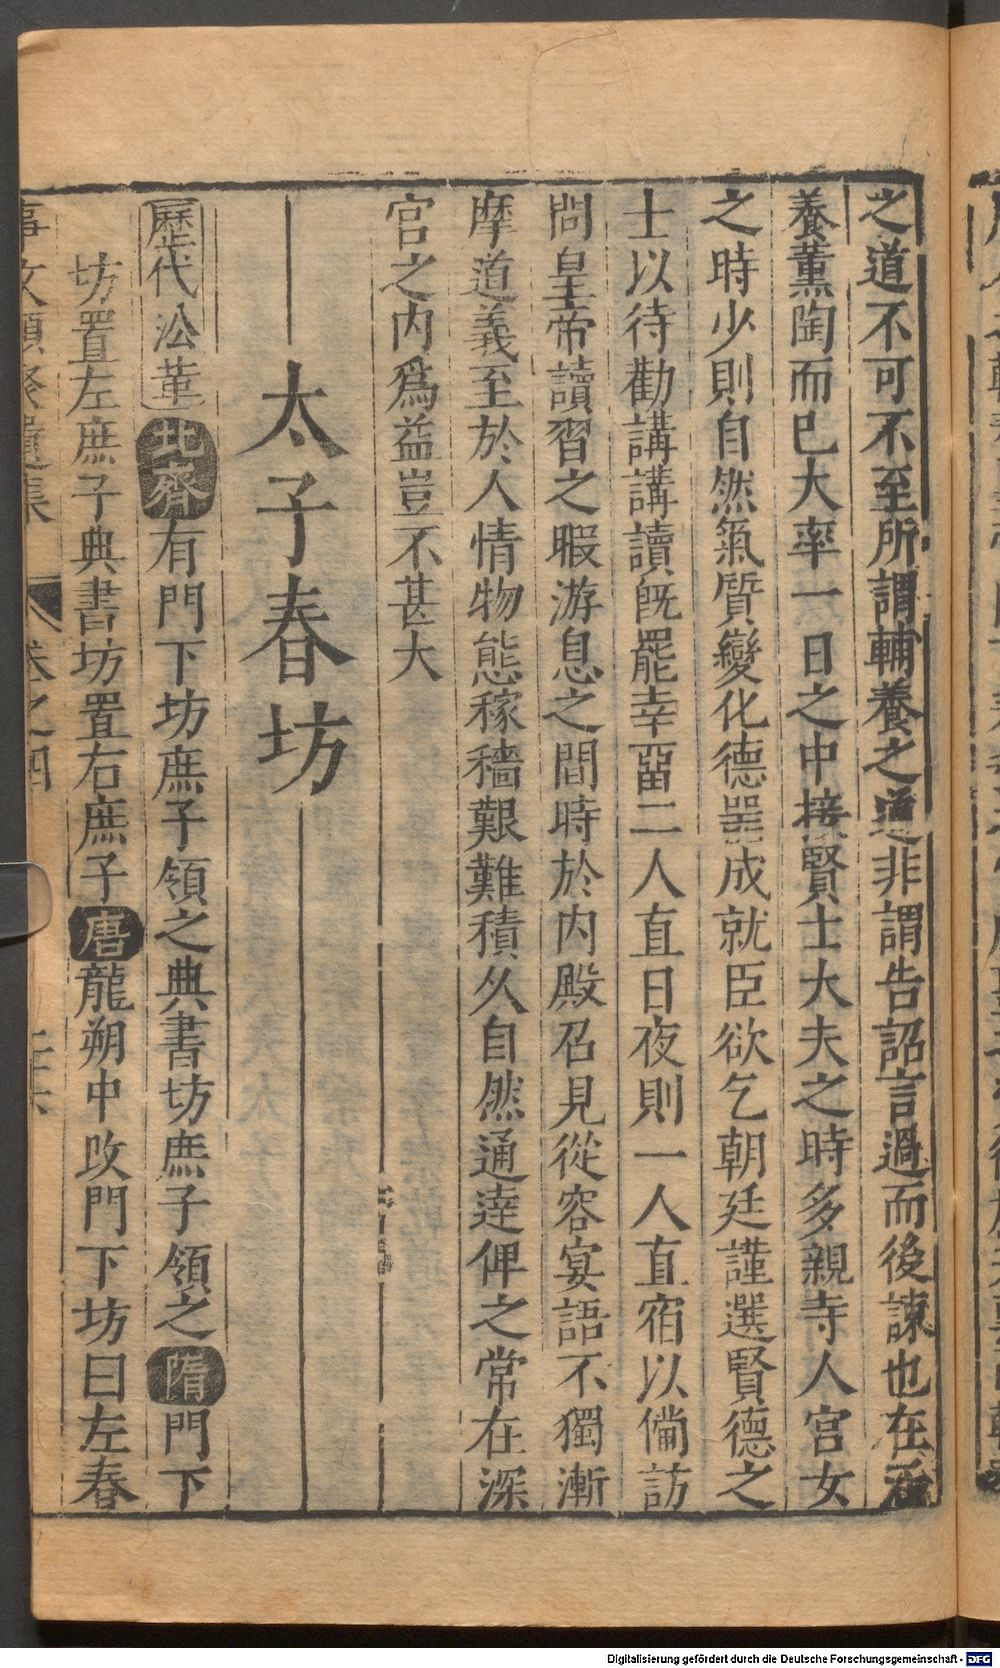 之道不可不至所謂輔養之道非謂告詔言過而後諫也在涵
養薰陶而已大率一日之中接賢士大夫之時多親寺人宮女
之時少則自然氣質變化德器成就臣欲乞朝廷謹選賢德之
士以待勸講講讀旣罷幸畱二人直日夜則一人直宿以備訪
問皇帝讀習之暇游息之間時於内殿召見從容宴語不獨漸
摩道義至於人情物態稼穡艱難積久自然通達俾之常在深
宮之内爲益豈不甚大
太子春坊
歷代沿革北齊有門下坊庶子領之典書坊庶子領之隋門下
坊置左庶子典書坊置右庶子唐龍朔中攺門下坊曰左春
事文類聚遺集 卷之四 二六
Digitalisierung gefördert durch die Deutsche Forschungsgemeinschaft - DFG